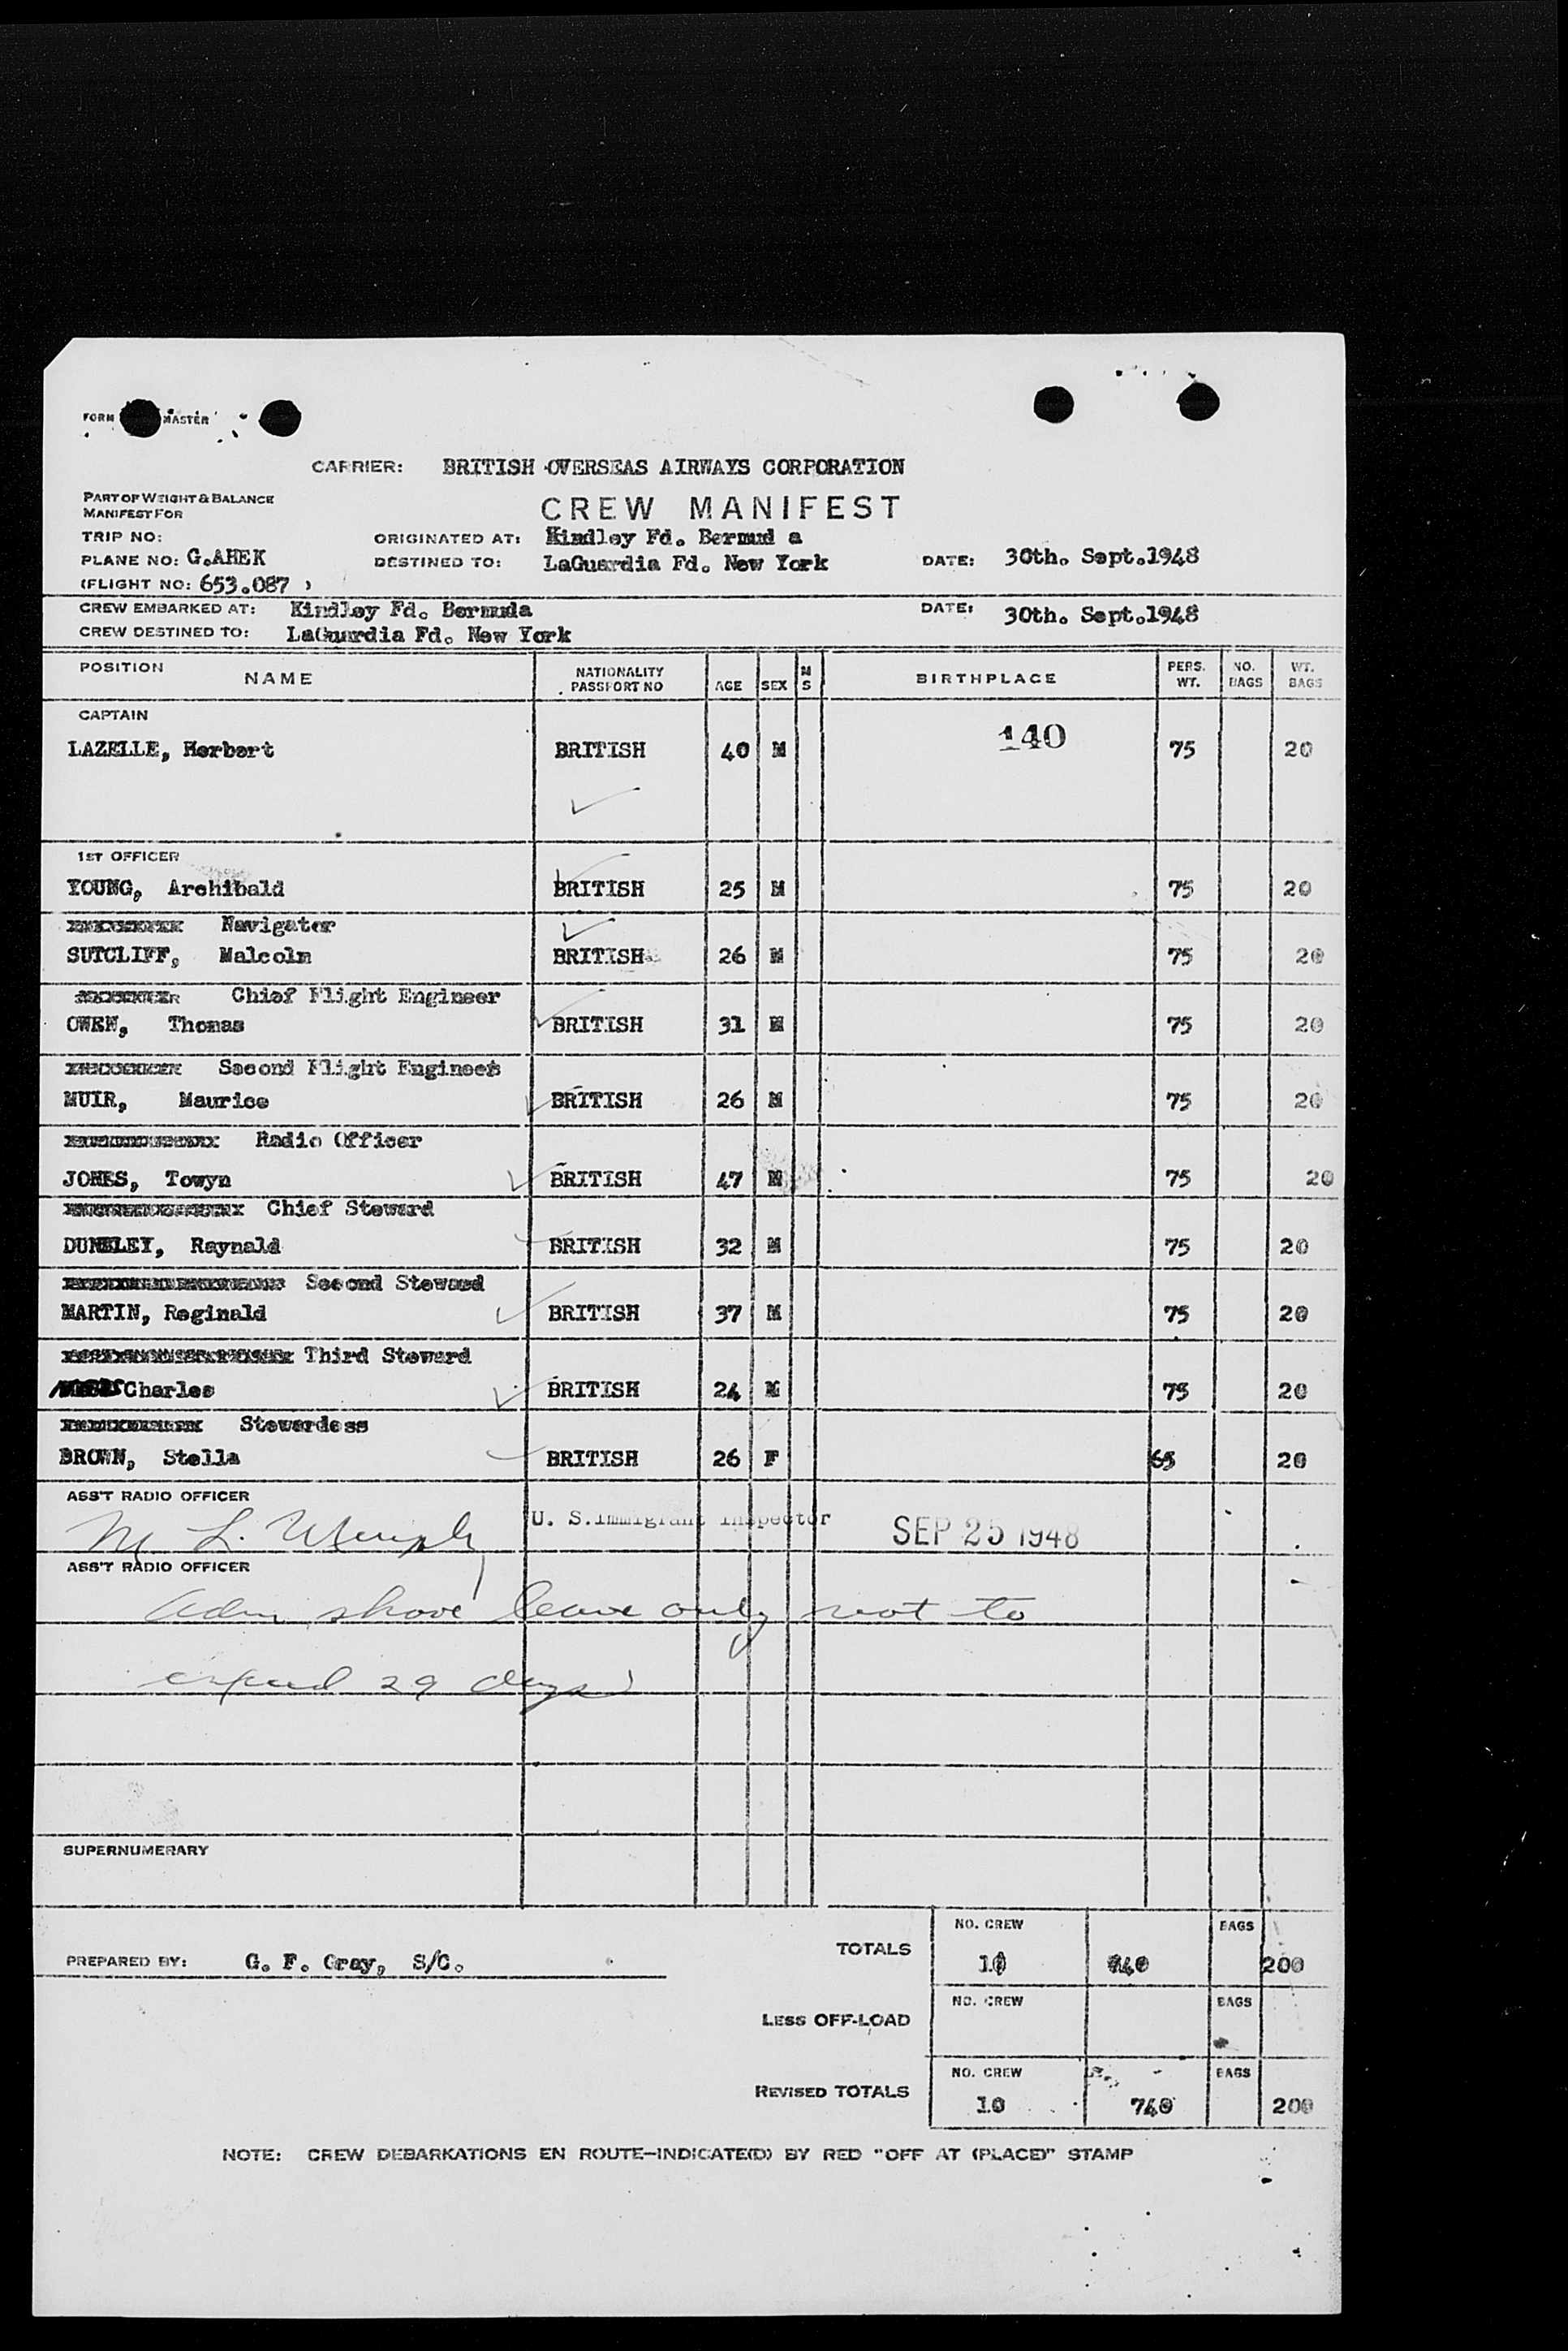 FORM MASTER
CARRIER: BRITISH OVERSEAS AIRWAYS CORPORATION
PART OF WEIGHT & BALANCE
MANIFEST FOR
CREW MANIFEST
TRIP NO: ORIGINATED AT: Kindley Fd. Bermud a
PLANE NO: G.AHEK DESTINED TO: LaGuardia Fd. New York DATE: 30th. Sept.1948
(FLIGHT NO: 653.087 )
CREW EMBARKED AT: Kindley Fd. Bermuda DATE: 30th. Sept.1948
CREW DESTINED TO: LaGuardia Fd. New York
POSITION NAME NATIONALITY PASSPORT NO AGE SEX M S BIRTHPLACE PERS. WT. NO. BAGS WT. BAGS
CAPTAIN
140
LAZELLE, Herbert BRITISH 40 M 75 20
1ST OFFICER
YOUNG, Archibald BRITISH 25 M 75 20
Navigator
SUTCLIFF, Malcolm BRITISH 26 M 75 20
Chief Flight Engineer
OWEN, Thomas BRITISH 31 M 75 20
Second Flight Engineer
MUIR, Maurice BRITISH 26 M 75 20
Radio Officer
JONES, Towyn BRITISH 47 M 75 20
Chief Steward
DUNKLEY, Raynald BRITISH 32 M 75 20
Second Steward
MARTIN, Reginald BRITISH 37 M 75 20
Third Steward
Charles BRITISH 24 M 75 20
Stewardess
BROWN, Stella BRITISH 26 F 65 20
ASS'T RADIO OFFICER
M L. U. S. Immigrant Inspector SEP 25 1948
ASS'T RADIO OFFICER
Adm shore leave only not to
exceed 29 days
SUPERNUMERARY
NO. CREW BAGS
TOTALS
PREPARED BY: G. F. Gray, S/C. 10 740 200
NO. CREW BAGS
LESS OFF-LOAD
NO. CREW BAGS
REVISED TOTALS 10 740 200
NOTE: CREW DEBARKATIONS EN ROUTE—INDICATE(D) BY RED "OFF AT (PLACE)" STAMP